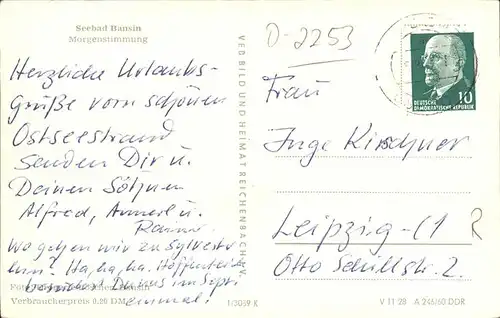 Seebad Bansin
Morgenstimmung
Herzliche Urlaubs-
Grüße vom schönen
Ostseestrand
senden Dir u.
Deinen Söhnen
Alfred, Annerl u.
Wo gehen wir zu Sylvester
hin? Ha, ha, ha. Hoffentlich
Du uns im Sept.
einmal.
Verbraucherpreis 0,20 DM
1/3089 K
VEB BILD UND HEIMAT REICHENBACH i. V.
D-2253
DEUTSCHE
DEMOKRATISCHE REPUBLIK
10
Frau
Inge Kirschner
Leipzig-C1
Otto Schillstr. 2.
R
V 11 28 A 246/60 DDR